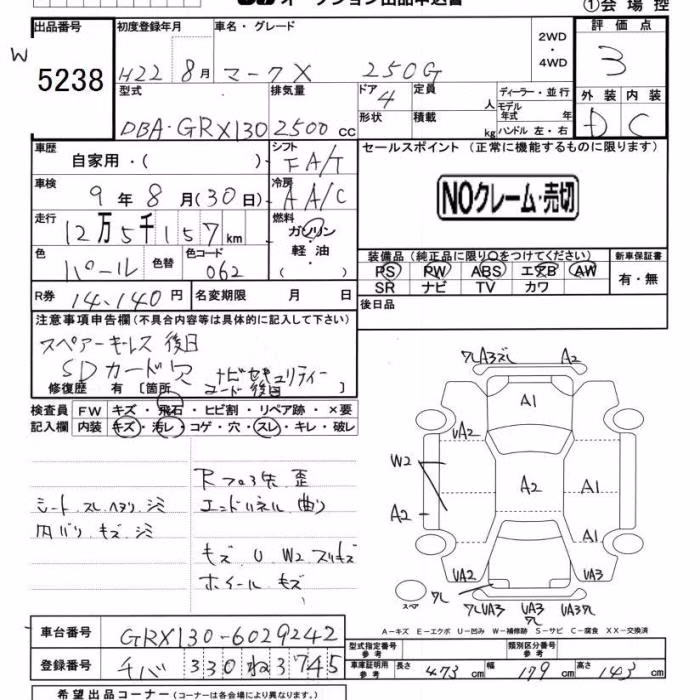 オークション出品申込書
①会場控
出品番号
初度登録年月
車名・グレード
2WD・4WD
評価点
W
5238
H22 8月
マークX
250G
3
型式
排気量
ドア
4
定員
人
ディーラー・並行
モデル年式
年
外装
内装
DBA・GRX130
2500cc
形状
積載
kg
ハンドル 左・右
D
C
車歴
自家用・( )
シフト
FA/T
セールスポイント (正常に機能するものに限ります)
車検
9年8月(30日)
冷房
AA/C
NOクレーム・売切
走行
12万5千157km
燃料
ガソリン・軽油・( )
色
パール
色替
色コード
062
装備品(純正品に限り○をつけてください)
新車保証書
PS PW ABS エアB AW
SR ナビ TV カワ
有・無
R券
14,140円
名変期限
月
日
後日品
注意事項申告欄(不具合内容等は具体的に記入して下さい)
スペアーキーレス 後日
SDカード欠
ナビセキュリティーコード後日
修復歴 有 [箇所 ]
検査員記入欄
FW
キズ・飛石・ヒビ割・リペア跡・×要
内装
キズ・汚レ・コゲ・穴・スレ・キレ・破レ
シート スレ ヘタリ シミ
内バリ キズ シミ
Rフロア 歪
エンドパネル 曲り
キズ U W2 スリキズ
ホイール キズ
ワレA3ズレ
A2
A1
UA2
W2
A2
A2
A1
A1
UA2
UA3
スペア
ワレ
ワレUA3
UA3ワレ
UA3ワレ
A-キズ E-エクボ U-凹み W-補修跡 S-サビ C-腐食 XX-交換済
車台番号
GRX130-6029242
登録番号
チバ 330 ね 3745
型式指定番号
参考
類別区分番号
参考
車庫証明用
参考
長さ
473cm
幅
179cm
高さ
143cm
希望出品コーナー(コーナーは各会場により異なります。)